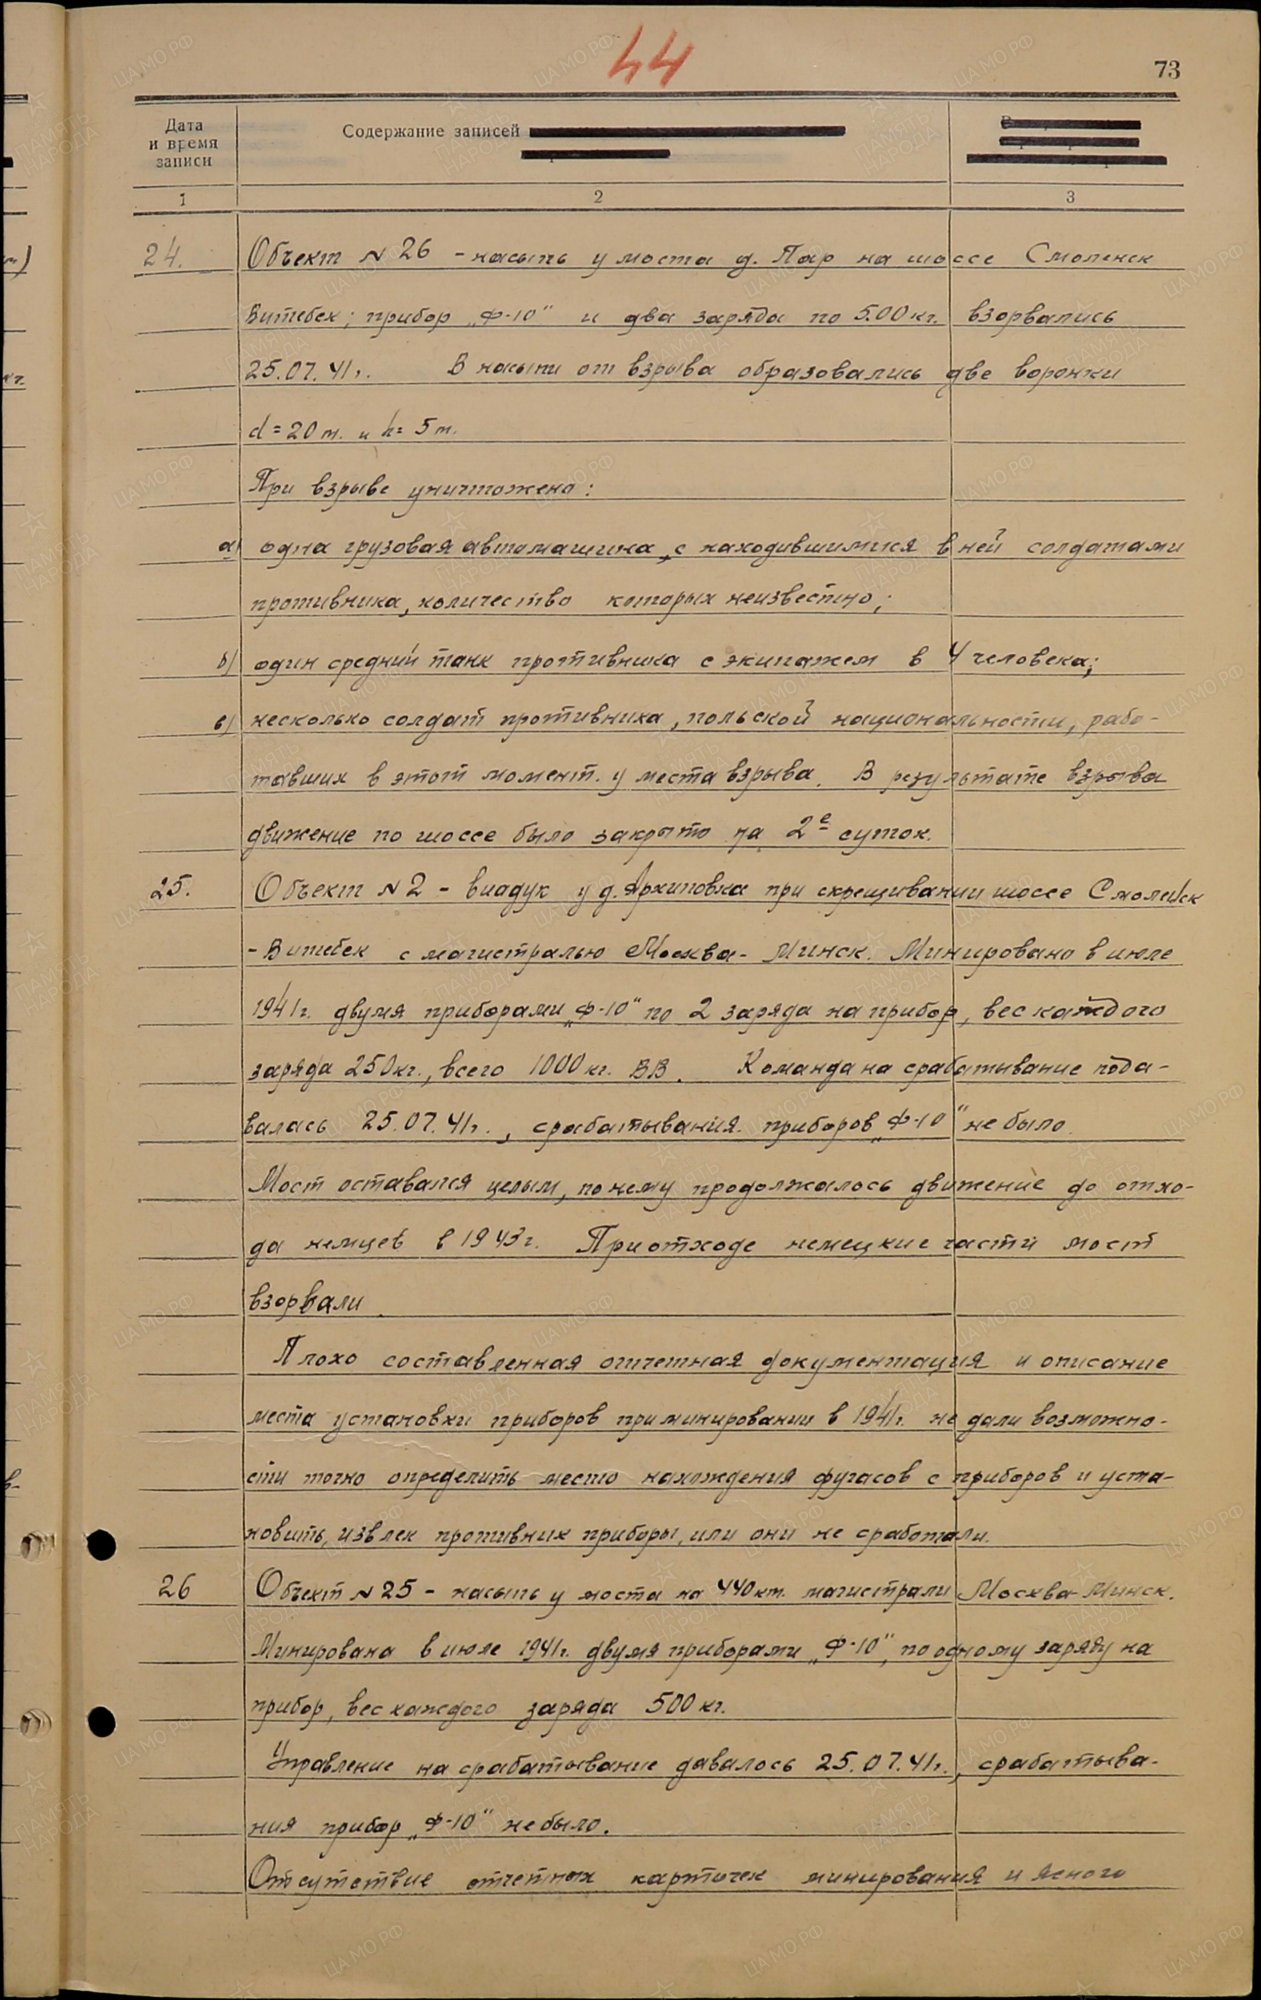 44
73
Дата и время записи
Содержание записей
1 2 3
24. Объект №26 - насыпь у моста д. Пар на шоссе Смоленск
Витебск; прибор „Ф-10" и два заряда по 500 кг. взорвались
25.07.41г. В насыпи от взрыва образовались две воронки
d=20 m. и h=5 m.
При взрыве уничтожено:
а) одна грузовая автомашина, с находившимися в ней солдатами
противника, количество которых неизвестно;
б) один средний танк противника с экипажем в 4 человека;
в) несколько солдат противника, польской национальности, рабо-
тавших в этот момент. у места взрыва. В результате взрыва
движение по шоссе было закрыто на 2е суток.
25. Объект №2 - виадук у д. Архиповка при скрещивании шоссе Смоленск
- Витебск с магистралью Москва - Минск. Минировано в июле
1941г. двумя приборами „Ф-10" по 2 заряда на прибор, вес каждого
заряда 250кг., всего 1000 кг. ВВ. Команда на срабатывание пода-
валась 25.07.41г., срабатывания приборов „Ф-10" не было.
Мост оставался целым, по нему продолжалось движение до отхо-
да немцев в 1943г. При отходе немецкие части мост
взорвали.
Плохо составленная отчетная документация и описание
места установки приборов при минировании в 1941г. не дали возможно-
сти точно определить место нахождения фугасов с приборов и уста-
новить, извлек противник приборы, или они не сработали.
26 Объект №25 - насыпь у моста на 440 км. магистрали Москва-Минск.
Минирована в июле 1941г. двумя приборами „Ф-10", по одному заряду на
прибор, вес каждого заряда 500 кг.
Управление на срабатывание давалось 25.07.41г., срабатыва-
ния прибор „Ф-10" не было.
Отсутствие отчетных карточек минирования и ясного